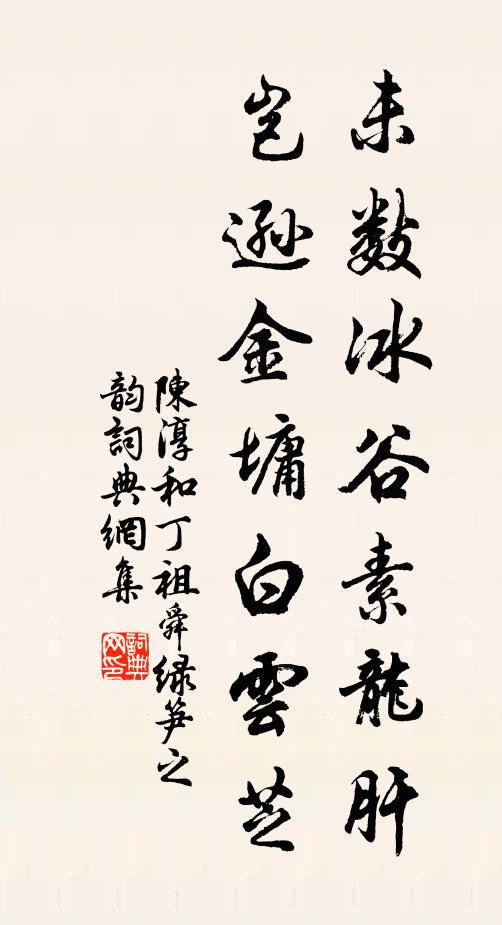 未數冰谷素龍肝
豈遜金墉白雲芝
陳淳和丁祖舜緑笋之
韵詞典網集
詞典
网印